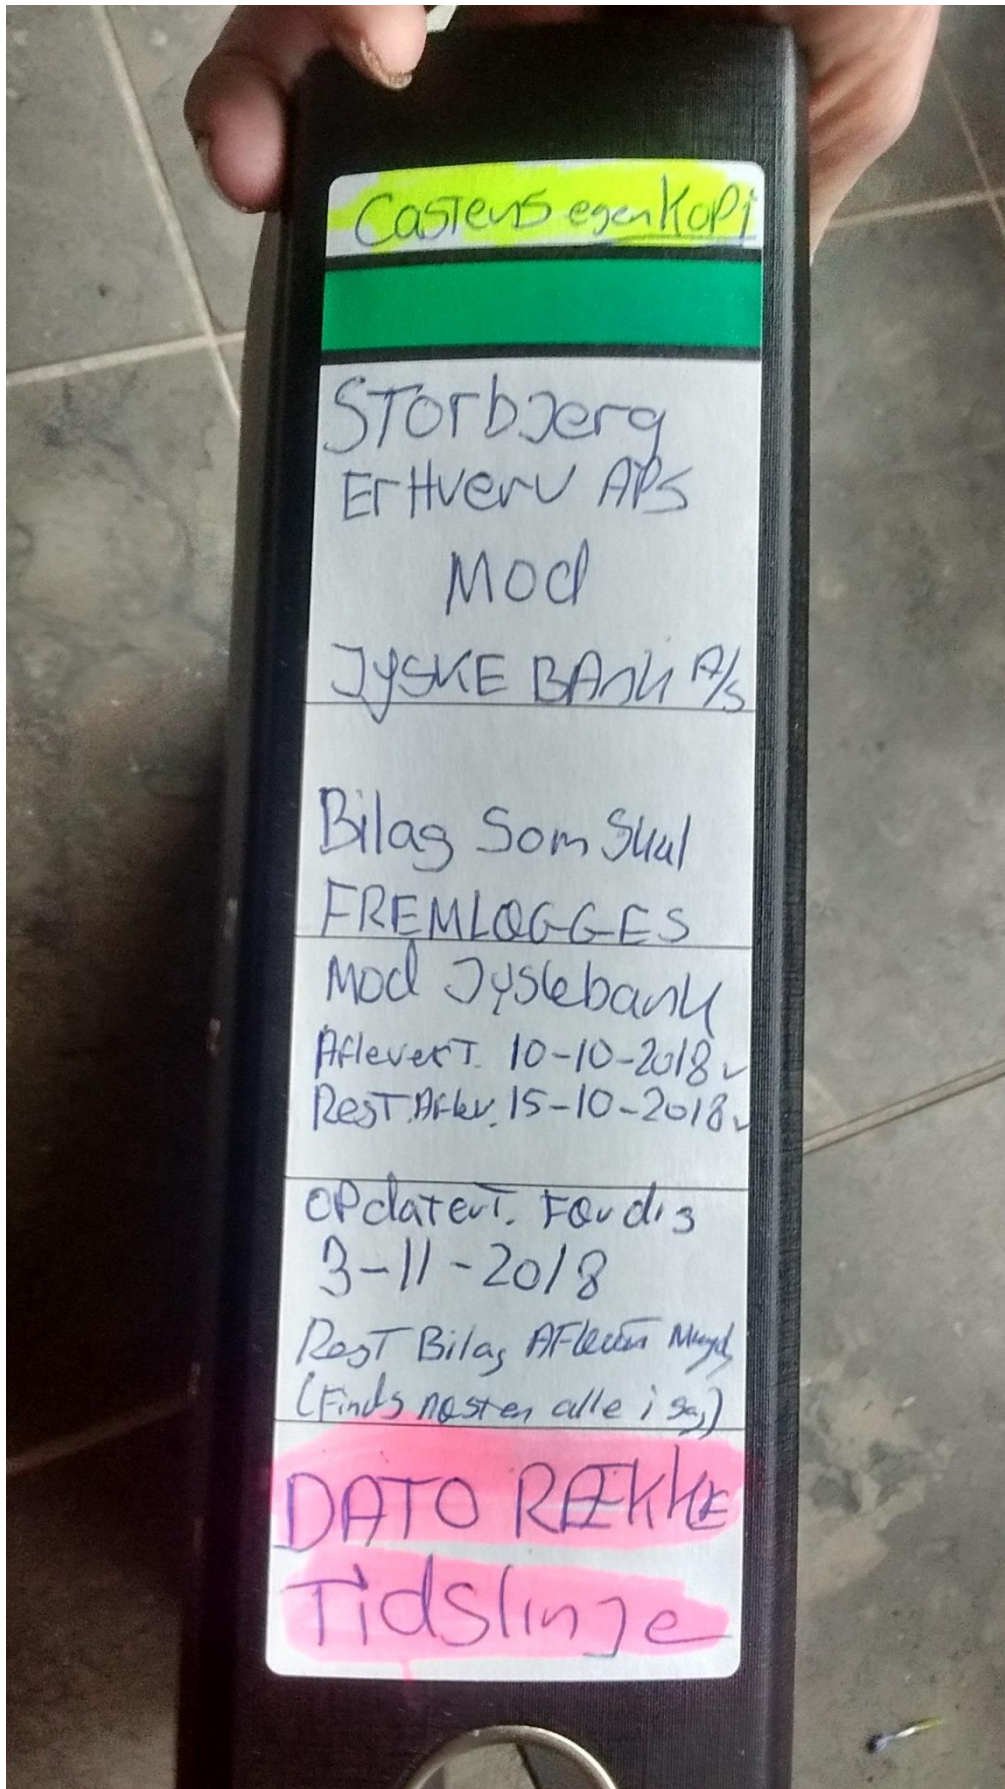 Castens egen KOPi
STorbJerg
ErHverv APS
Mod
JYSKE BAnk A/S
Bilag Som Skal
FREMLØGGES
Mod Jyskebank
AfleverT. 10-10-2018
ResT. Aflev. 15-10-2018
OPdaterT. Færdig
3-11-2018
ResT Bilag AFlever
(Finds næsten alle i sag)
DATO RÆKKE
TidslinJe